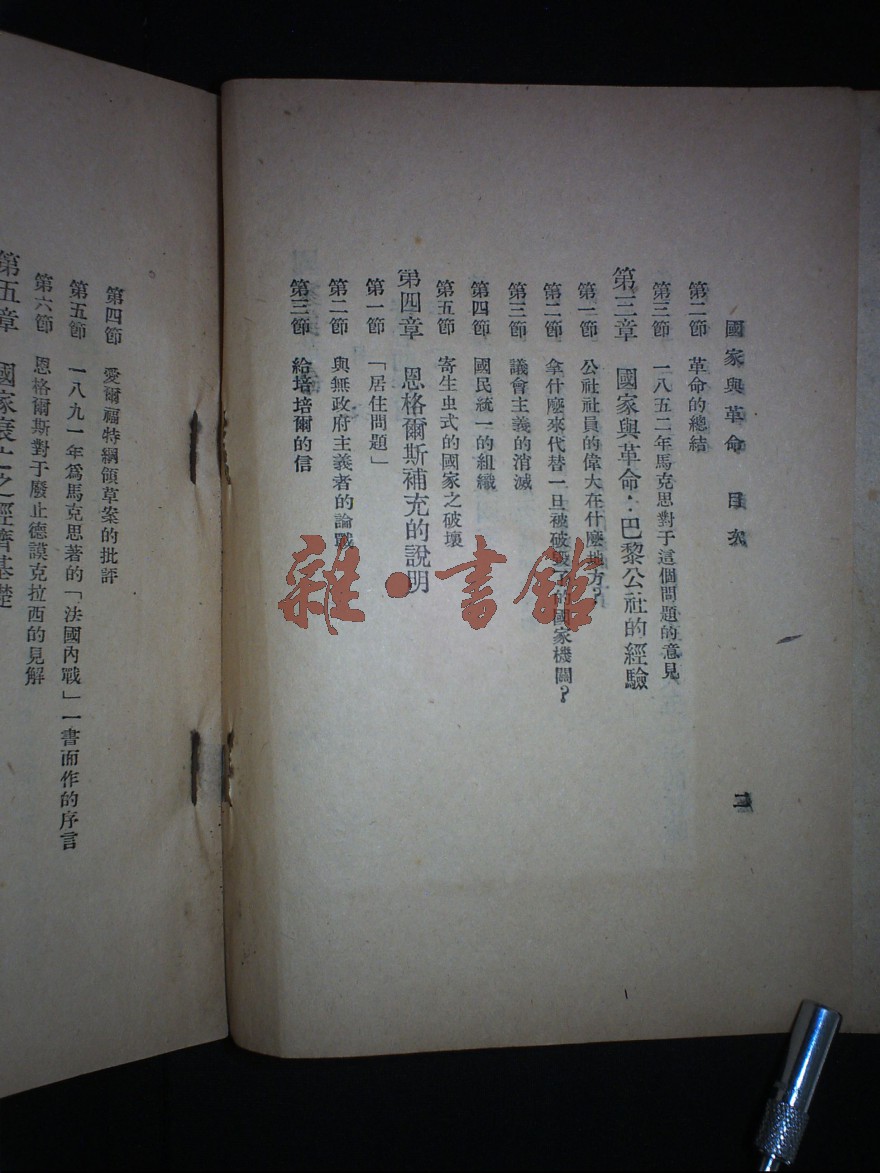 國家與革命 目次
二
第二節 革命的總結
第三節 一八五二年馬克思對于這個問題的意見
第三章 國家與革命：巴黎公社的經驗
第一節 公社社員的偉大在什麼地方？
第二節 拿什麼來代替一旦被破毀了的國家機關？
第三節 議會主義的消滅
第四節 國民統一的組織
第五節 寄生虫式的國家之破壞
第四章 恩格爾斯補充的說明
第一節 「居住問題」
第二節 與無政府主義者的論戰
第三節 給培培爾的信
第四節 愛爾福特綱領草案的批評
第五節 一八九一年爲馬克思著的「法國內戰」一書而作的序言
第六節 恩格爾斯對于廢止德謨克拉西的見解
第五章 國家衰亡之經濟基礎
雜·書館